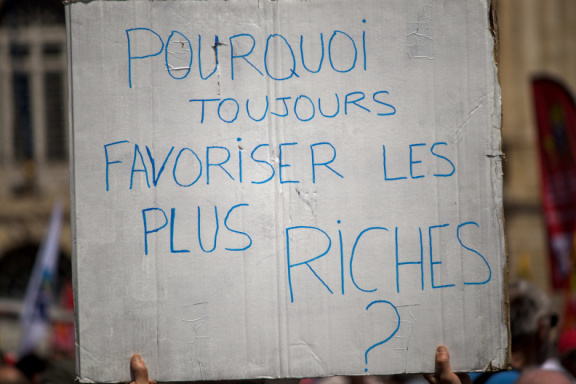 POURQUOI
TOUJOURS
FAVORISER LES
PLUS RICHES
?